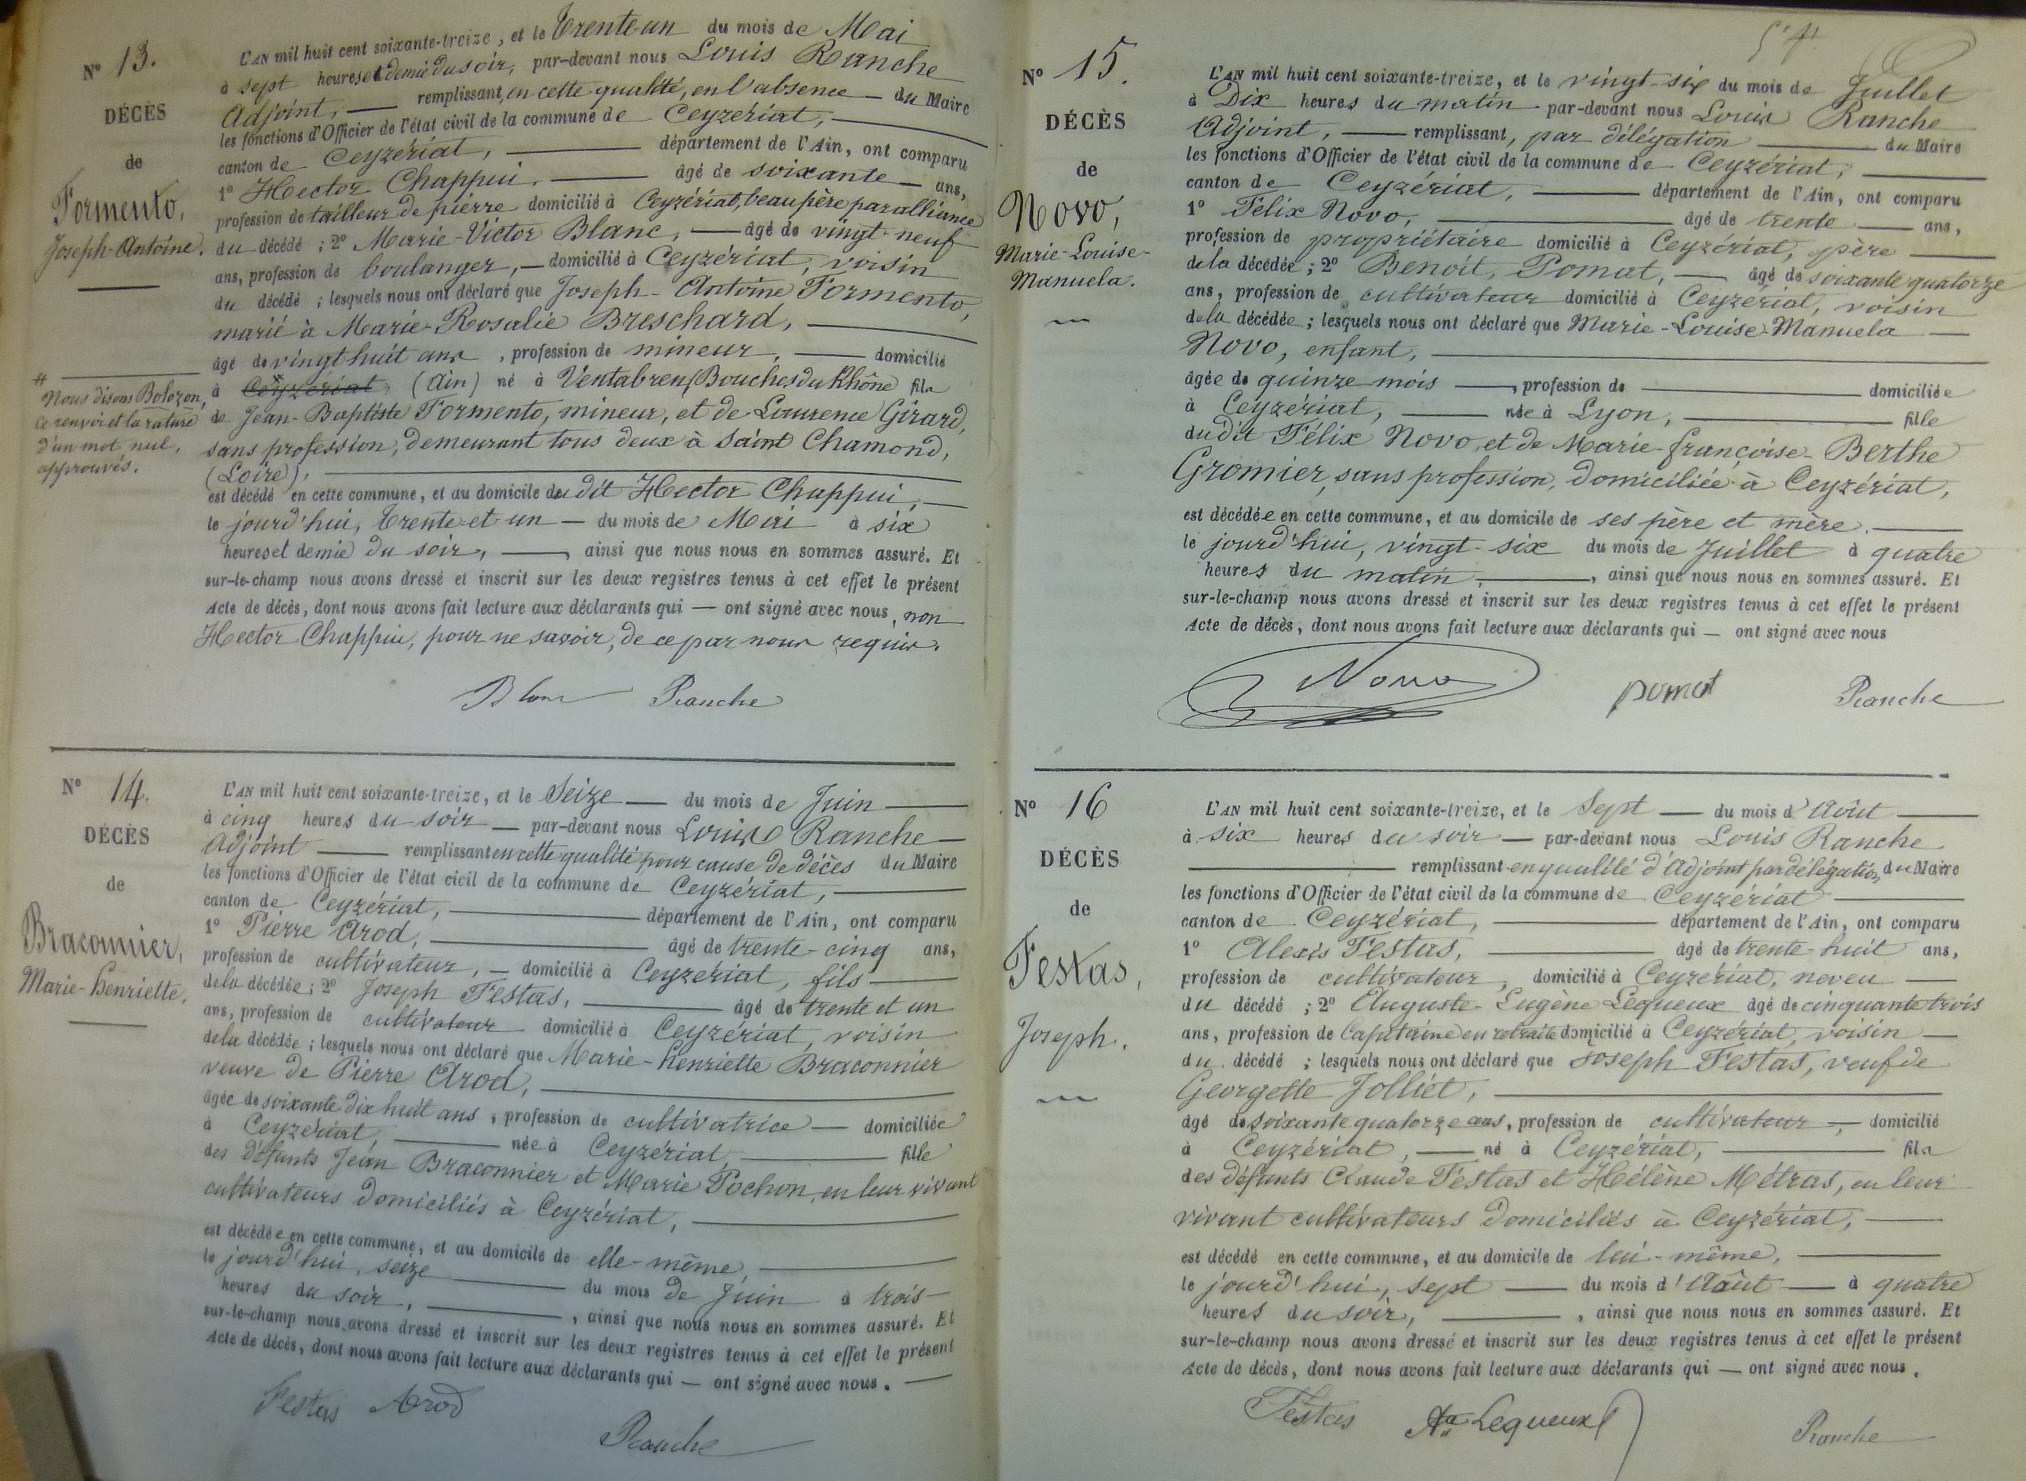 N° 13.
DÉCÈS
de
Formento,
Joseph-Antoine.
L'AN mil huit cent soixante-treize, et le Trente un du mois de Mai
à sept heures et demie du soir, par-devant nous Louis Ranche
Adjoint, remplissant, en cette qualité, en l'absence du Maire
les fonctions d'Officier de l'état civil de la commune de Ceyzériat,
canton de Ceyzériat, département de l'Ain, ont comparu
1° Hector Chappui, âgé de soixante ans,
profession de tailleur de pierre domicilié à Ceyzériat, beau père par alliance
du décédé ; 2° Marie-Victor Blanc, âgé de vingt-neuf
ans, profession de boulanger, domicilié à Ceyzériat, voisin
du décédé ; lesquels nous ont déclaré que Joseph-Antoine Formento,
marié à Marie-Rosalie Breschard,
âgé de vingt huit ans, profession de mineur, domicilié
à Ceyzériat, (Ain) né à Ventabren (Bouches du Rhône fils
de Jean-Baptiste Formento, mineur, et de Laurence Girard,
sans profession, demeurant tous deux à Saint Chamond,
(Loire),
est décédé en cette commune, et au domicile du dit Hector Chappui,
le jourd'hui, trente et un du mois de Mai à six
heures et demie du soir, ainsi que nous nous en sommes assuré. Et
sur-le-champ nous avons dressé et inscrit sur les deux registres tenus à cet effet le présent
Acte de décès, dont nous avons fait lecture aux déclarants qui — ont signé avec nous, non
Hector Chappui, pour ne savoir, de ce par nous requis.
Nous disons Bolozon,
ce renvoi et la rature
d'un mot nul,
approuvés.
Blanc Ranche
N° 14.
DÉCÈS
de
Braconnier,
Marie-Henriette.
L'AN mil huit cent soixante-treize, et le Seize du mois de Juin
à cinq heures du soir par-devant nous Louis Ranche
Adjoint remplissant en cette qualité pour cause de décès du Maire
les fonctions d'Officier de l'état cicil de la commune de Ceyzériat,
canton de Ceyzériat, département de l'Ain, ont comparu
1° Pierre Arod, âgé de trente-cinq ans,
profession de cultivateur, domicilié à Ceyzériat, fils
de la décédée ; 2° Joseph Festas, âgé de trente et un
ans, profession de cultivateur domicilié à Ceyzériat, voisin
de la décédée ; lesquels nous ont déclaré que Marie-Henriette Braconnier
veuve de Pierre Arod,
âgée de soixante dix huit ans, profession de cultivatrice domiciliée
à Ceyzériat, née à Ceyzériat, fille
des défunts Jean Braconnier et Marie Pochon, en leur vivant
cultivateurs domiciliés à Ceyzériat,
est décédée en cette commune, et au domicile de elle-même,
le jourd'hui, seize du mois de Juin à trois
heures du soir, ainsi que nous nous en sommes assuré. Et
sur-le-champ nous avons dressé et inscrit sur les deux registres tenus à cet effet le présent
Acte de décès, dont nous avons fait lecture aux déclarants qui — ont signé avec nous.
Festas Arod
Ranche
N° 15.
DÉCÈS
de
Novo,
Marie-Louise-
Manuela.
L'AN mil huit cent soixante-treize, et le vingt-six du mois de Juillet
à Dix heures du matin par-devant nous Louis Ranche
Adjoint, remplissant, par délégation du Maire
les fonctions d'Officier de l'état civil de la commune de Ceyzériat,
canton de Ceyzériat, département de l'Ain, ont comparu
1° Félix Novo, âgé de trente ans,
profession de propriétaire domicilié à Ceyzériat, père
de la décédée ; 2° Benoit, Pomat, âgé de soixante quatorze
ans, profession de cultivateur domicilié à Ceyzériat, voisin
de la décédée ; lesquels nous ont déclaré que Marie-Louise-Manuela
Novo, enfant,
âgée de quinze mois, profession de domiciliée
à Ceyzériat, née à Lyon, fille
du dit Félix Novo, et de Marie-françoise-Berthe
Gromier, sans profession, domiciliée à Ceyzériat,
est décédée en cette commune, et au domicile de ses père et mère,
le jourd'hui, vingt-six du mois de Juillet à quatre
heures du matin, ainsi que nous nous en sommes assuré. Et
sur-le-champ nous avons dressé et inscrit sur les deux registres tenus à cet effet le présent
Acte de décès, dont nous avons fait lecture aux déclarants qui — ont signé avec nous
Novo pomat Ranche
N° 16
DÉCÈS
de
Festas,
Joseph.
L'AN mil huit cent soixante-treize, et le Sept du mois d'Août
à six heures du soir par-devant nous Louis Ranche
remplissant en qualité d'Adjoint par délégation du Maire
les fonctions d'Officier de l'état civil de la commune de Ceyzériat
canton de Ceyzériat, département de l'Ain, ont comparu
1° Alexis Festas, âgé de trente-huit ans,
profession de cultivateur, domicilié à Ceyzériat, neveu
du décédé ; 2° Auguste-Eugène Lequeux âgé de cinquante trois
ans, profession de Capitaine en retraite domicilié à Ceyzériat, voisin
du décédé ; lesquels nous ont déclaré que Joseph Festas, veuf de
Georgette Jolliet,
âgé de soixante quatorze ans, profession de cultivateur, domicilié
à Ceyzériat, né à Ceyzériat, fils
des défunts Claude Festas et Hélène Métras, en leur
vivant cultivateurs domiciliés à Ceyzériat,
est décédé en cette commune, et au domicile de lui-même,
le jourd'hui, sept du mois d'Août à quatre
heures du soir, ainsi que nous nous en sommes assuré. Et
sur-le-champ nous avons dressé et inscrit sur les deux registres tenus à cet effet le présent
Acte de décès, dont nous avons fait lecture aux déclarants qui — ont signé avec nous.
Festas Lequeux Ranche